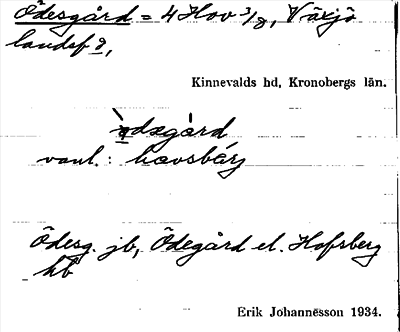 Ödesgård = 4 Hov 3/8, Växjö
landsf 9,
Kinnevalds hd, Kronobergs län.
ödasgård
vanl.: hovsbärj
Ödesg. jb, Ödegård el. Hofsberg
hb
Erik Johannesson 1934.